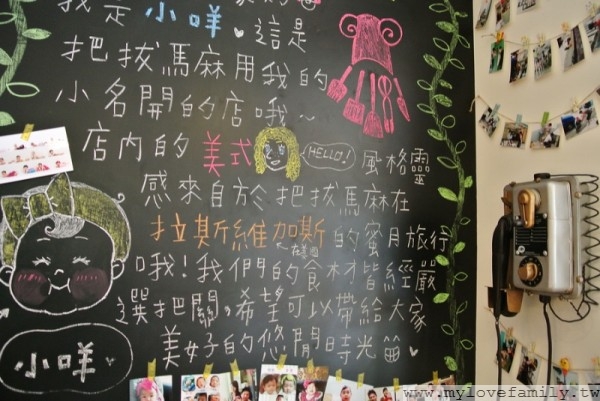 我是小咩。這是
把拔馬麻用我的
小名開的店哦~
店內的美式 HELLO! 風格靈
感來自於把拔馬麻在
拉斯維加斯的蜜月旅行
在美國
哦!我們的食材皆經嚴
選把關。希望可以帶給大家
美好的悠閒時光
小咩
www.mylovefamily.tw